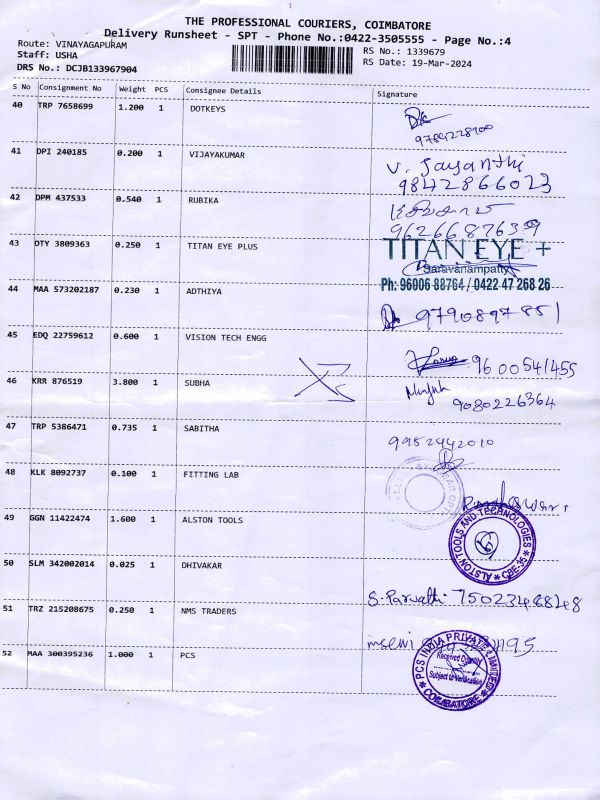 THE PROFESSIONAL COURIERS, COIMBATORE
Delivery Runsheet - SPT - Phone No.:0422-3505555 - Page No.:4
Route: VINAYAGAPURAM
Staff: USHA
DRS No.: DCJB133967904
RS No.: 1339679
RS Date: 19-Mar-2024
S No Consignment No Weight PCS Consignee Details Signature
40 TRP 7658699 1.200 1 DOTKEYS
9784228900
41 DPI 240185 0.200 1 VIJAYAKUMAR
V. Jayanthi
9842866023
42 DPM 437533 0.540 1 RUBIKA
9626687639
43 DTY 3809363 0.250 1 TITAN EYE PLUS
TITAN EYE +
Saravanampatty
Ph: 96006 88764 / 0422 47 268 26
44 MAA 573202187 0.230 1 ADTHIYA
9790897851
45 EDQ 22759612 0.600 1 VISION TECH ENGG
9600541455
46 KRR 876519 3.800 1 SUBHA
9080226364
47 TRP 5386471 0.735 1 SABITHA
9952442010
48 KLK 8092737 0.100 1 FITTING LAB
49 GGN 11422474 1.600 1 ALSTON TOOLS
ALSTON TOOLS AND TECHNOLOGIES
CBE-35
50 SLM 342002014 0.025 1 DHIVAKAR
S. Parvathi 7502348848
51 TRZ 215208675 0.250 1 NMS TRADERS
52 MAA 300395236 1.000 1 PCS
PCS INDIA PRIVATE
Received Quantity
Subject to Verification
COIMBATORE